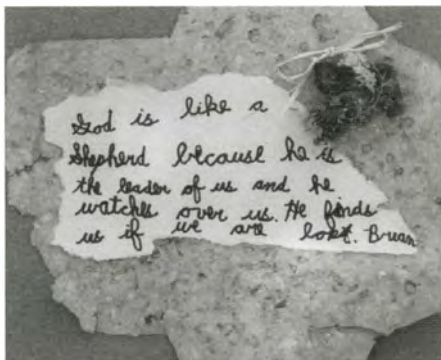 God is like a
Shepherd because he is
the leader of us and he
watches over us. He finds
us if we are lost. Brian